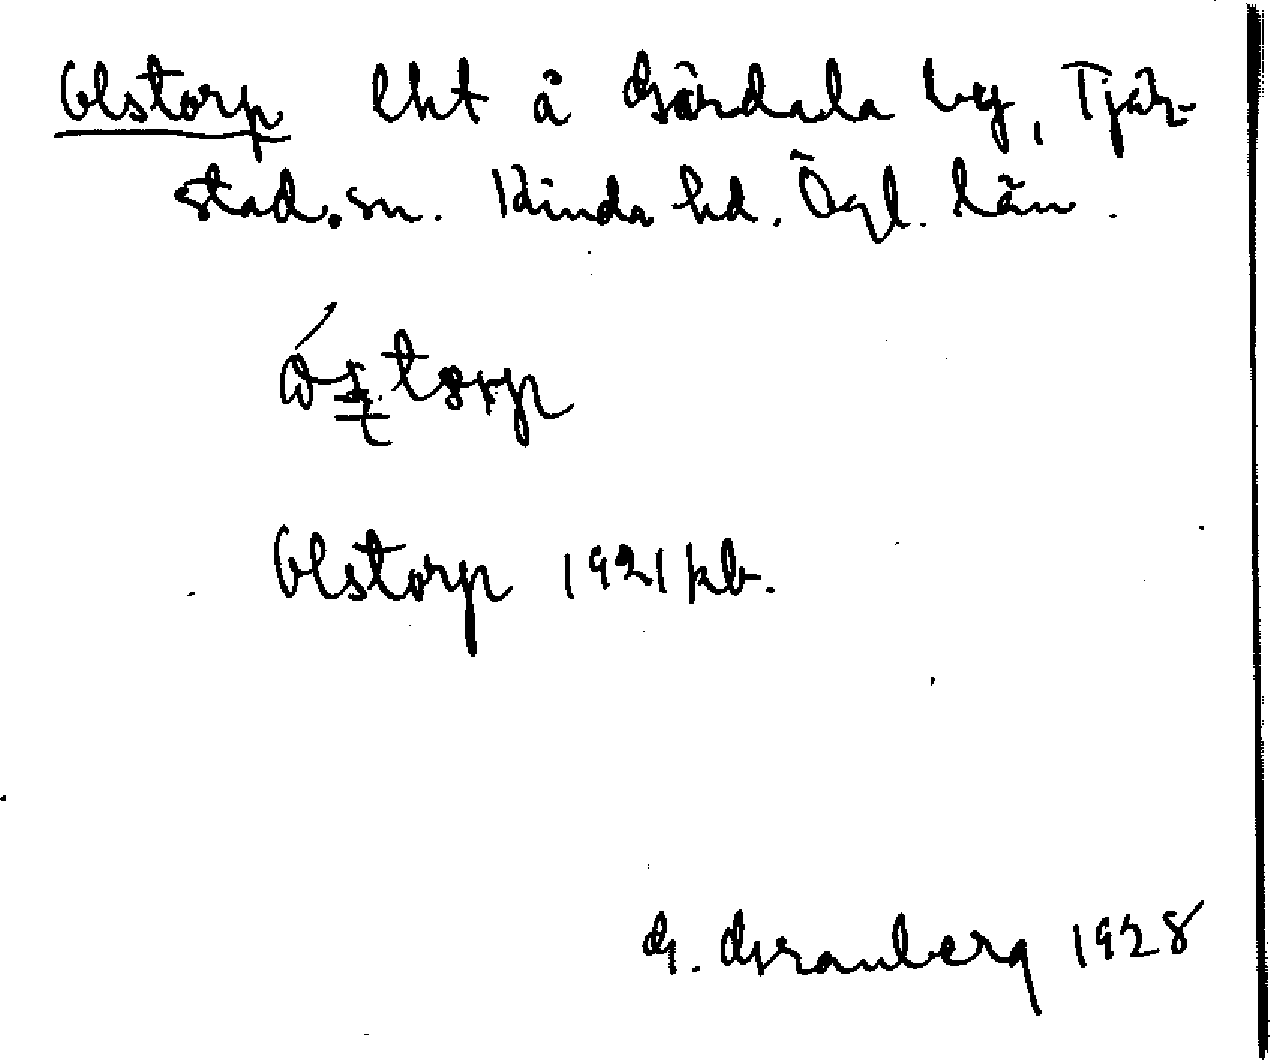 Olstorp lht å Gärdala by, Tjär-
stad. sn. Kinda hd. Ögl. län.
Olstorp 1921 kb.
G. Granberg 1928